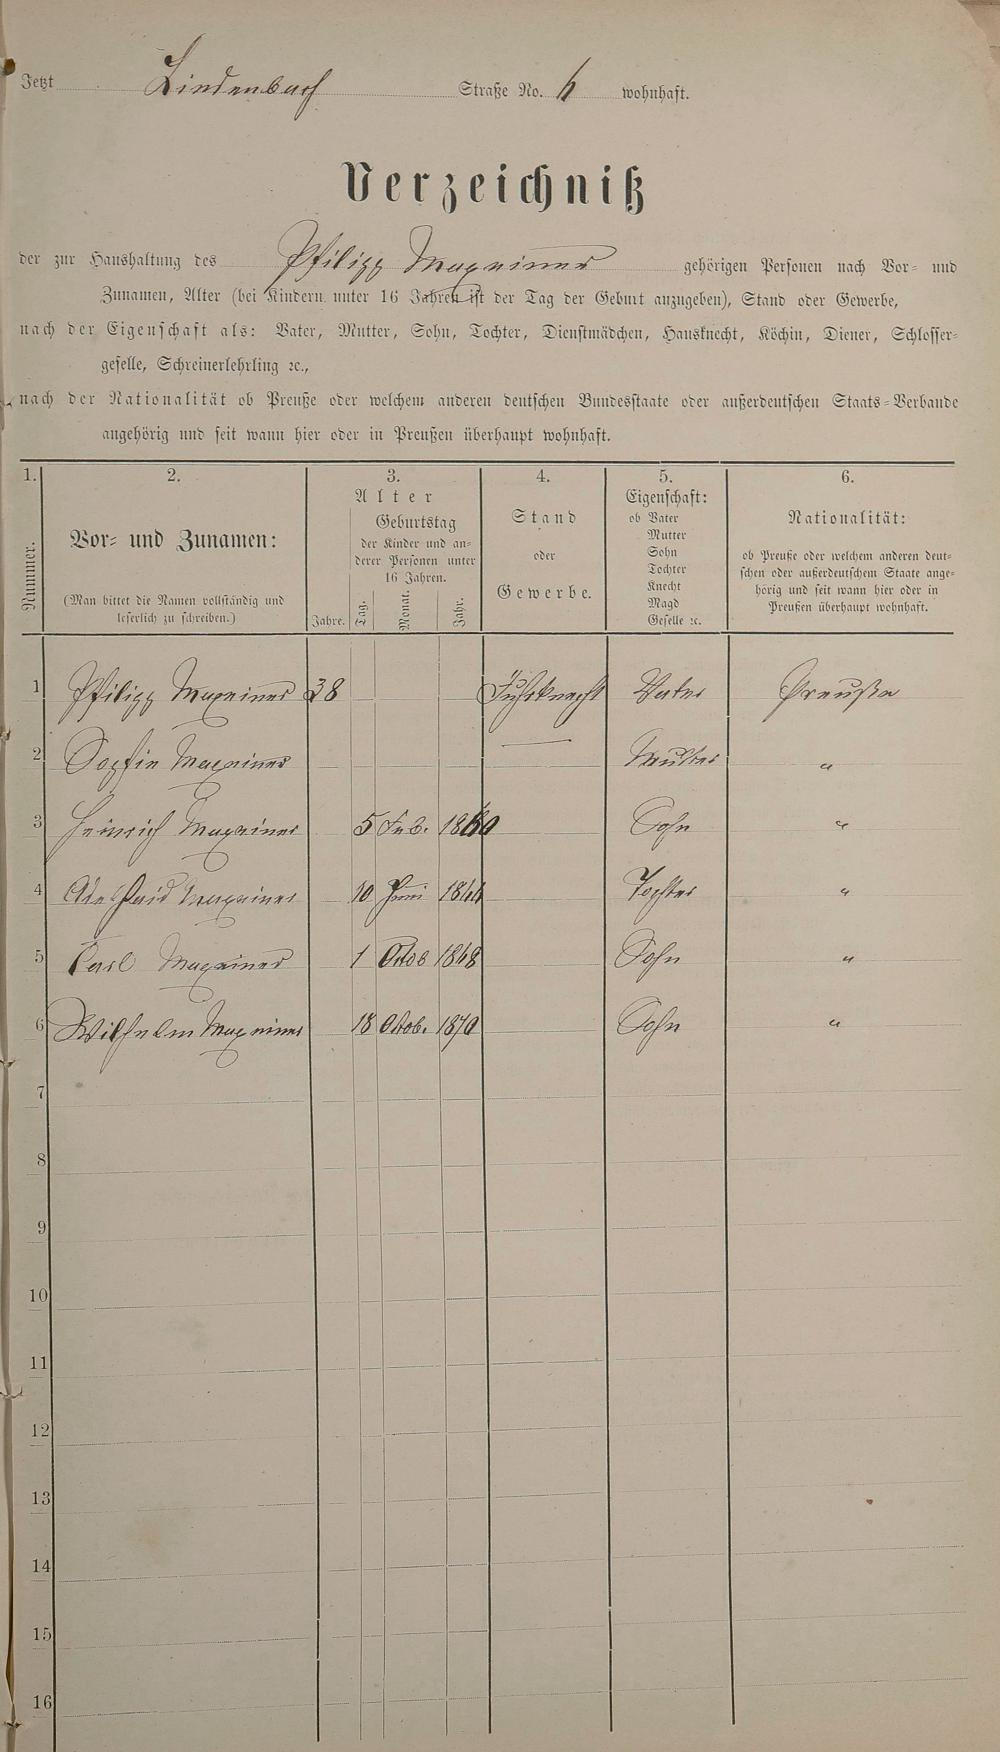 Jetzt Lindenbach Straße No. 6 wohnhaft.
Verzeichniß
der zur Haushaltung des Philipp Maxeiner gehörigen Personen nach Vor- und
Zunamen, Alter (bei Kindern unter 16 Jahren ist der Tag der Geburt anzugeben), Stand oder Gewerbe,
nach der Eigenschaft als: Vater, Mutter, Sohn, Tochter, Dienstmädchen, Hausknecht, Köchin, Diener, Schlosser-
geselle, Schreinerlehrling ꝛc.,
nach der Nationalität ob Preuße oder welchem anderen deutschen Bundesstaate oder außerdeutschen Staats-Verbande
angehörig und seit wann hier oder in Preußen überhaupt wohnhaft.
1. 2. 3. 4. 5. 6.
Nummer.
Vor- und Zunamen:
(Man bittet die Namen vollständig und
leserlich zu schreiben.)
Alter
Jahre.
Geburtstag
der Kinder und an-
derer Personen unter
16 Jahren.
Tag. Monat. Jahr.
Stand
oder
Gewerbe.
Eigenschaft:
ob Vater
Mutter
Sohn
Tochter
Knecht
Magd
Geselle ꝛc.
Nationalität:
ob Preuße oder welchem anderen deut-
schen oder außerdeutschem Staate ange-
hörig und seit wann hier oder in
Preußen überhaupt wohnhaft.
1 Philipp Maxeiner 38 Fuhrknecht Vater Preuße
2 Sophie Maxeiner — Mutter "
3 Heinrich Maxeiner 5 Feb. Sohn "
4 Adelhaid Maxeiner 10 Juni Tochter "
5 Carl Maxeiner 1 Oktob 1868 Sohn "
6 Wilhelm Maxeiner 18 Oktob. 1870 Sohn "
7
8
9
10
11
12
13
14
15
16